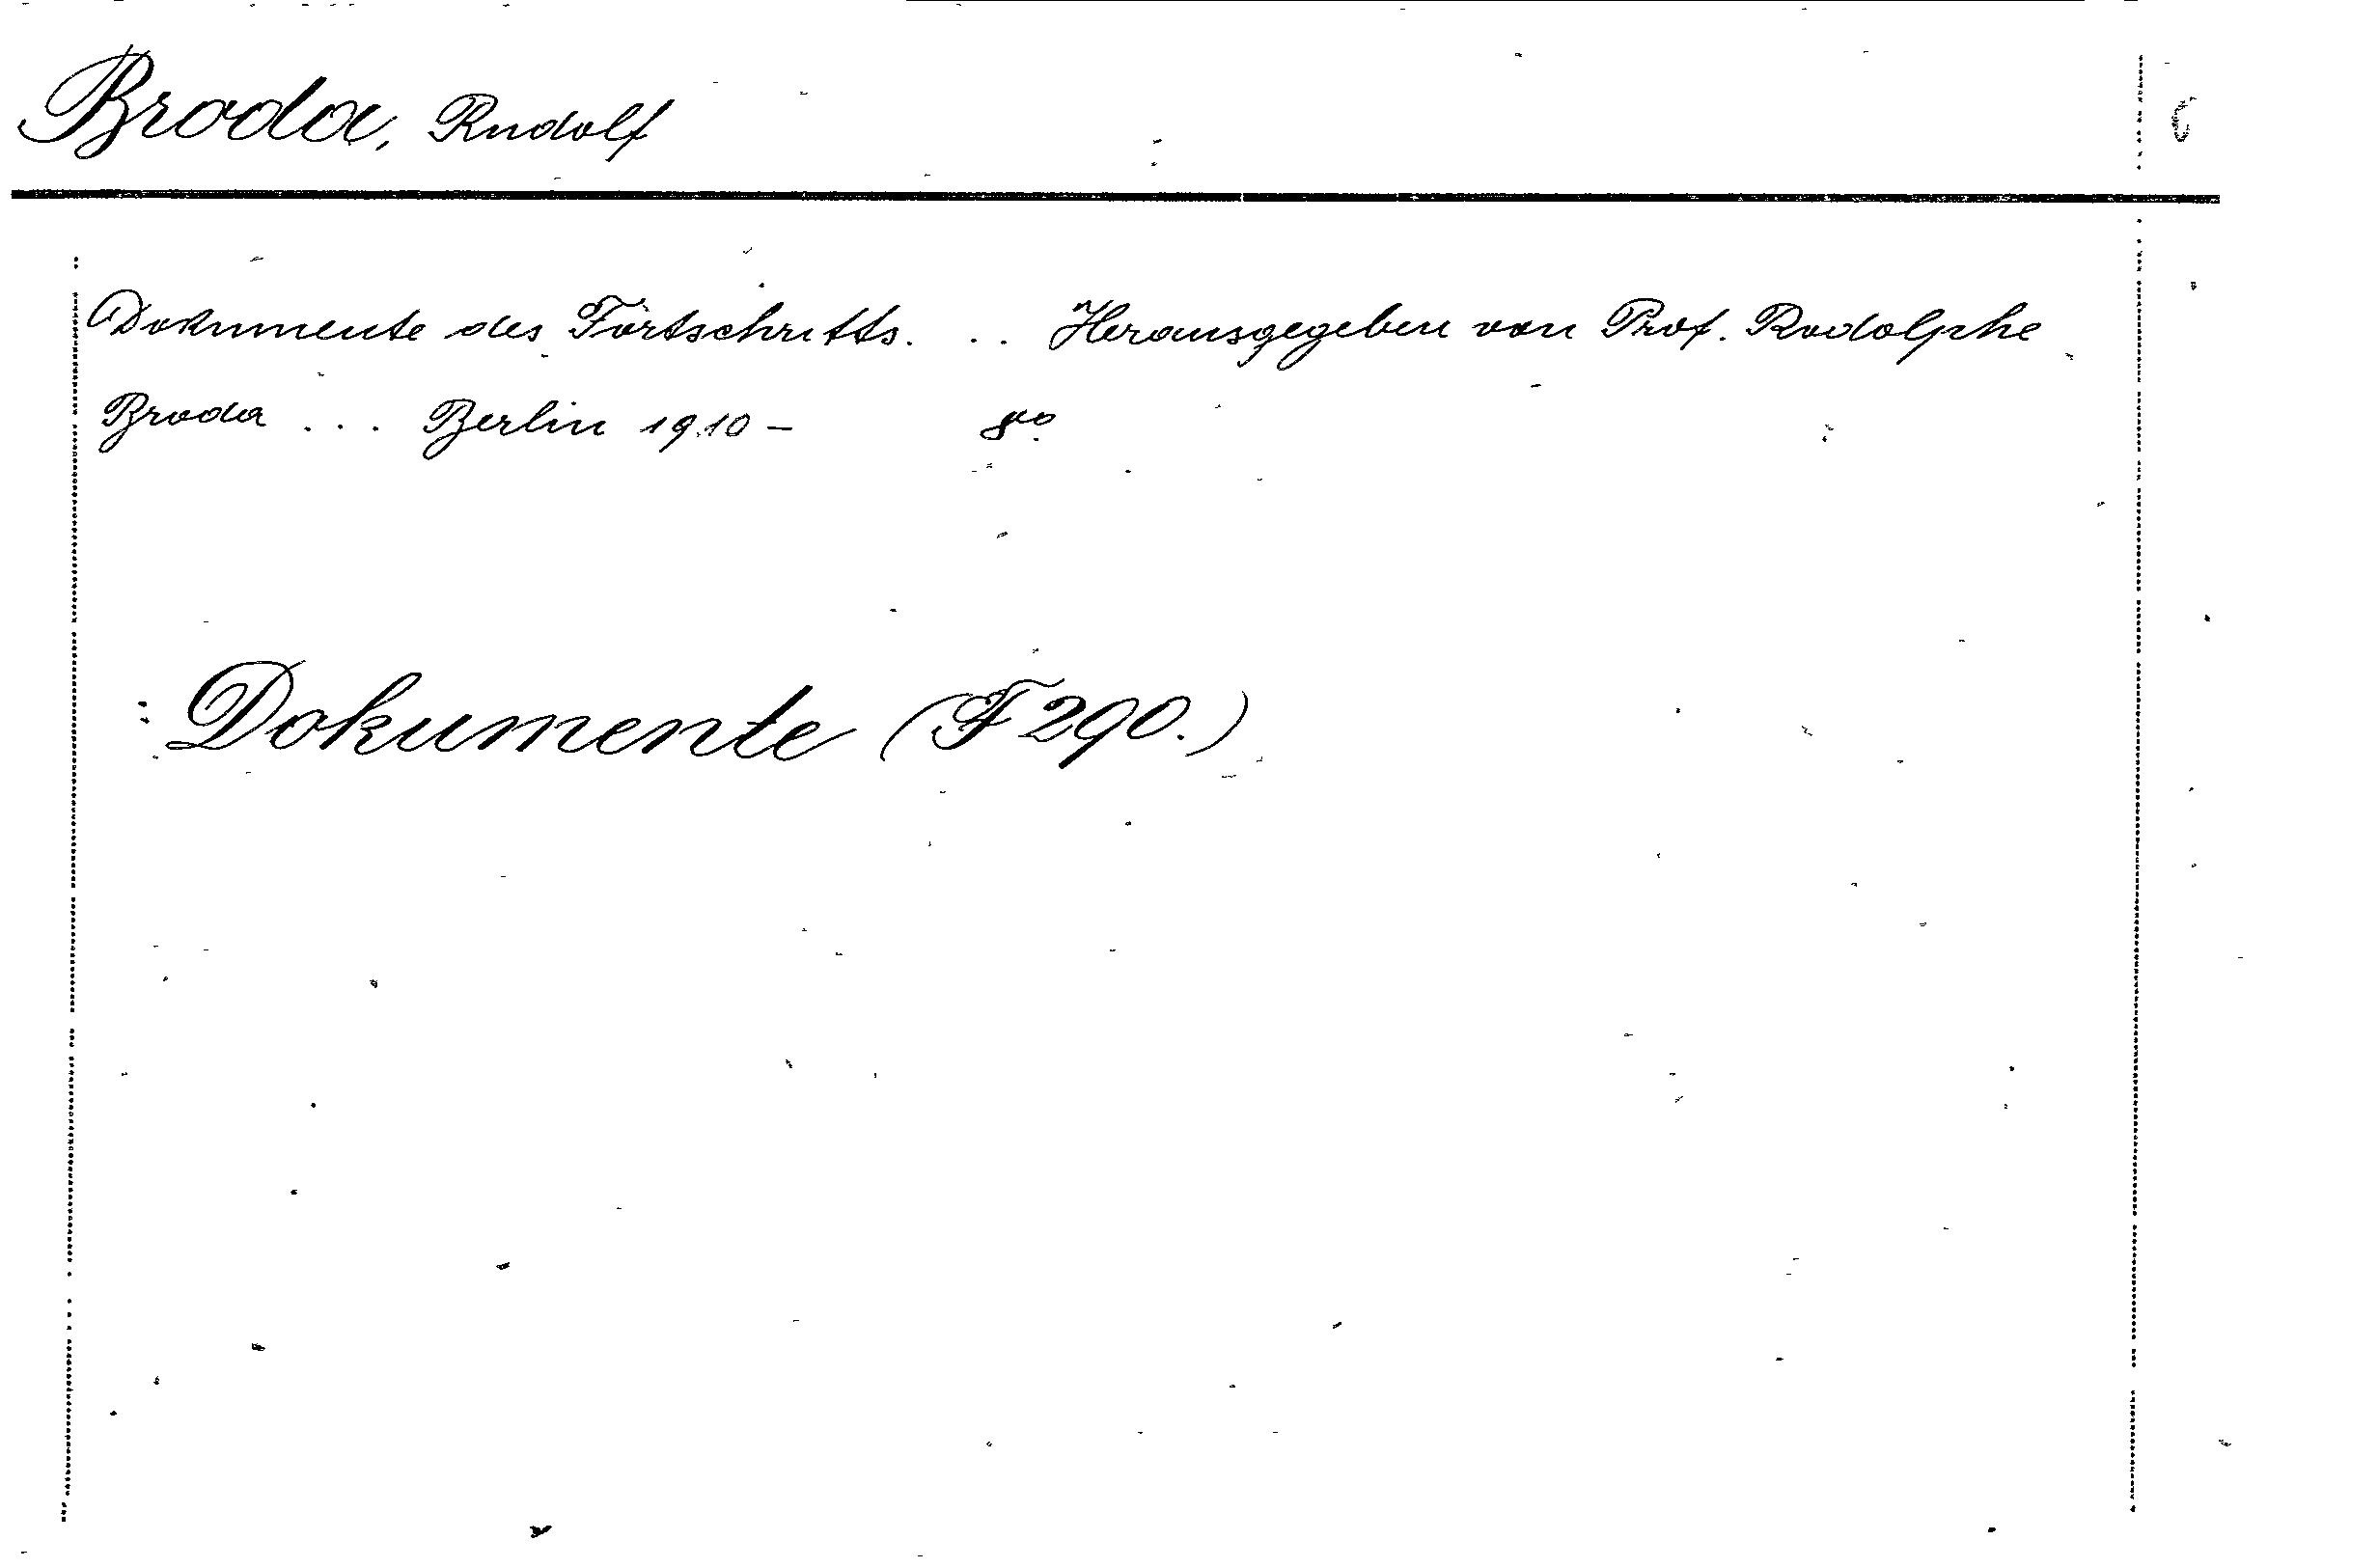 Broda, Rudolf
Dokumente des Fortschritts. . . Herausgegeben von Prof. Rodolphe
Broda . . . Berlin 1910 – 8vo
Dokumente (F 290.)